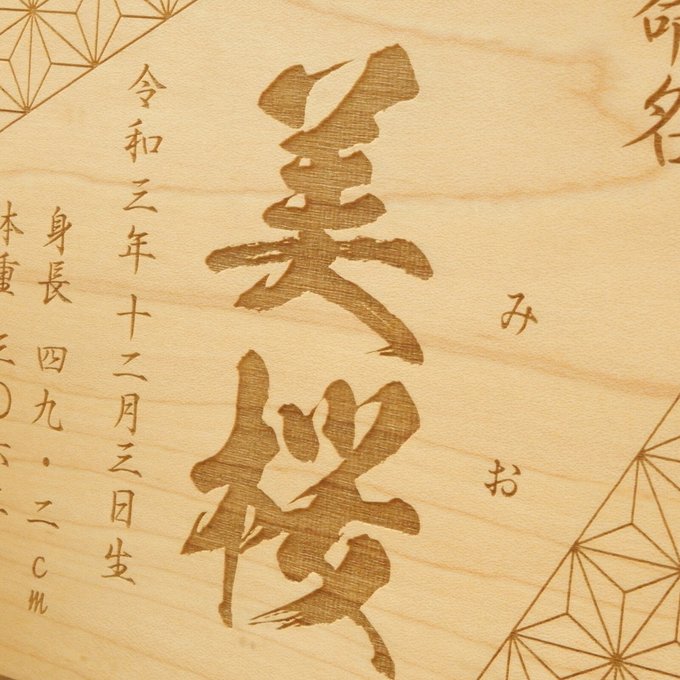 命名
みお
美桜
令和三年十二月三日生
身長 四九・二cm
体重 三〇六